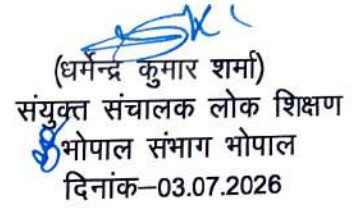 (धर्मेन्द्र कुमार शर्मा)
संयुक्त संचालक लोक शिक्षण
भोपाल संभाग भोपाल
दिनांक–03.07.2026